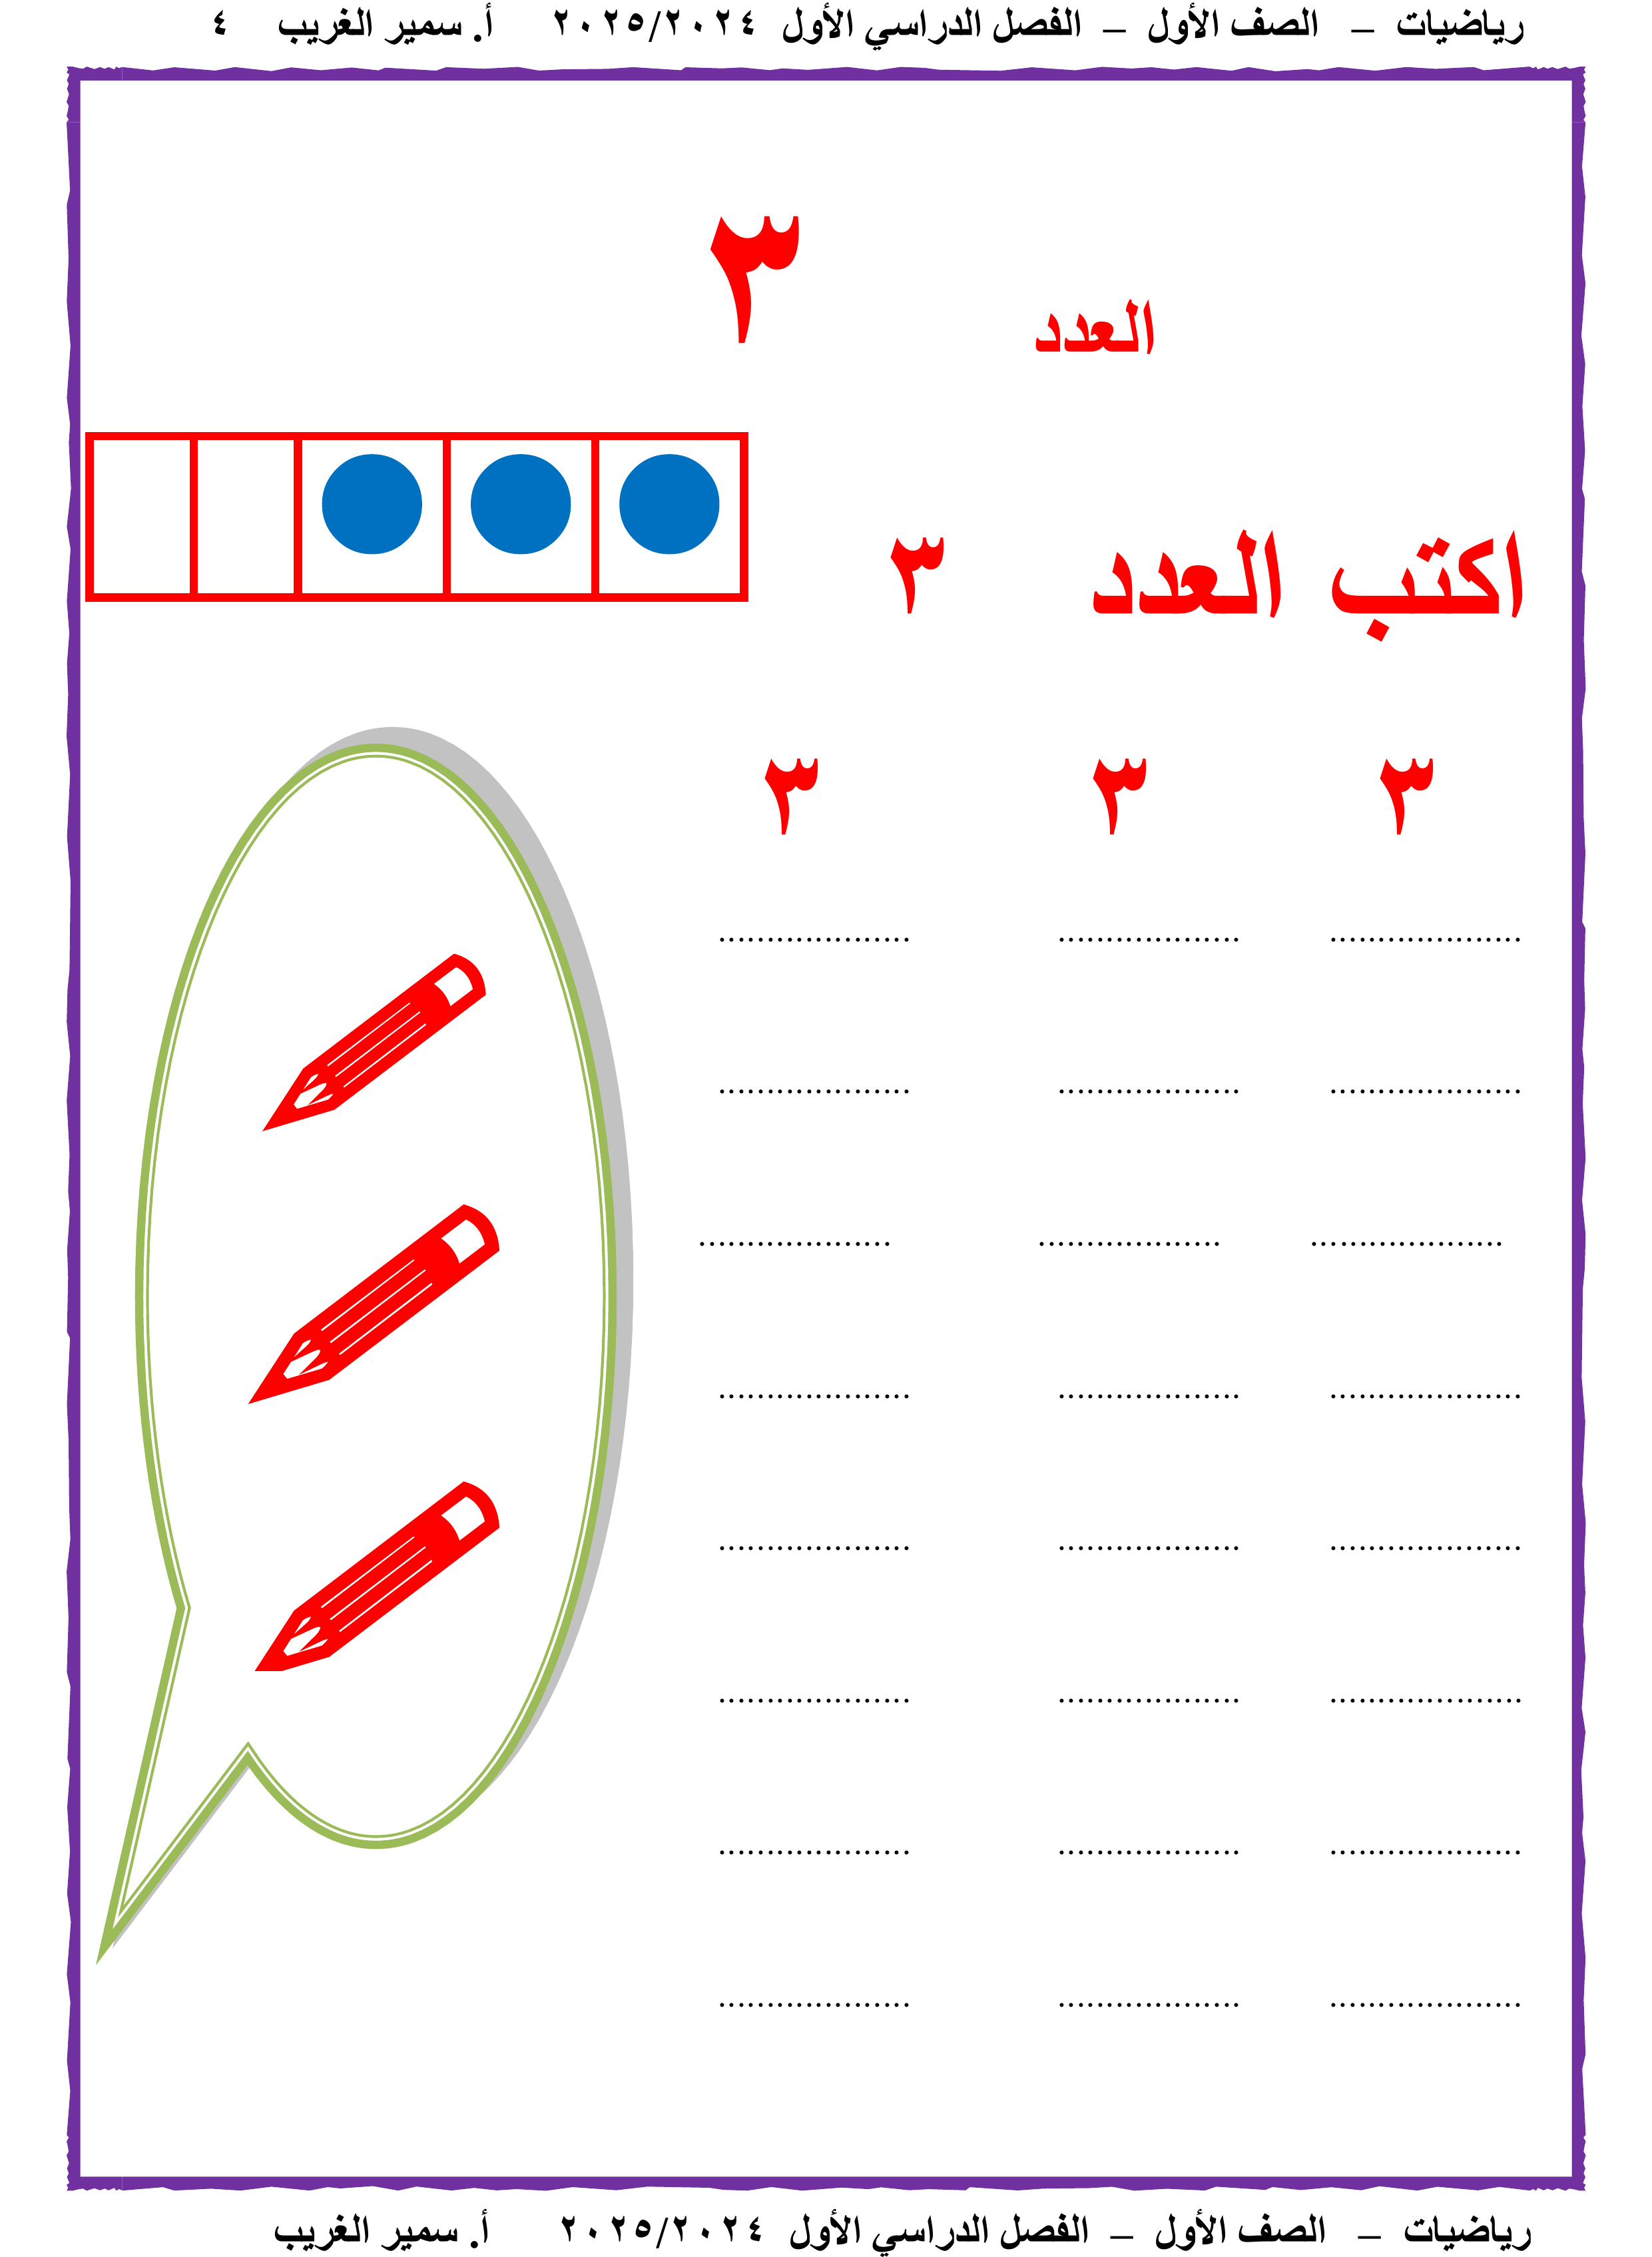 رياضيات – الصف الأول – الفصل الدراسي الأول ٢٠٢٥/٢٠٢٤ أ. سمير الغريب ٤
٣
العدد
اكتب العدد ٣
٣ ٣ ٣
................... .................. ...................
................... .................. ...................
................... .................. ...................
................... .................. ...................
................... .................. ...................
................... .................. ...................
................... .................. ...................
................... .................. ...................
رياضيات – الصف الأول – الفصل الدراسي الأول ٢٠٢٥/٢٠٢٤ أ. سمير الغريب